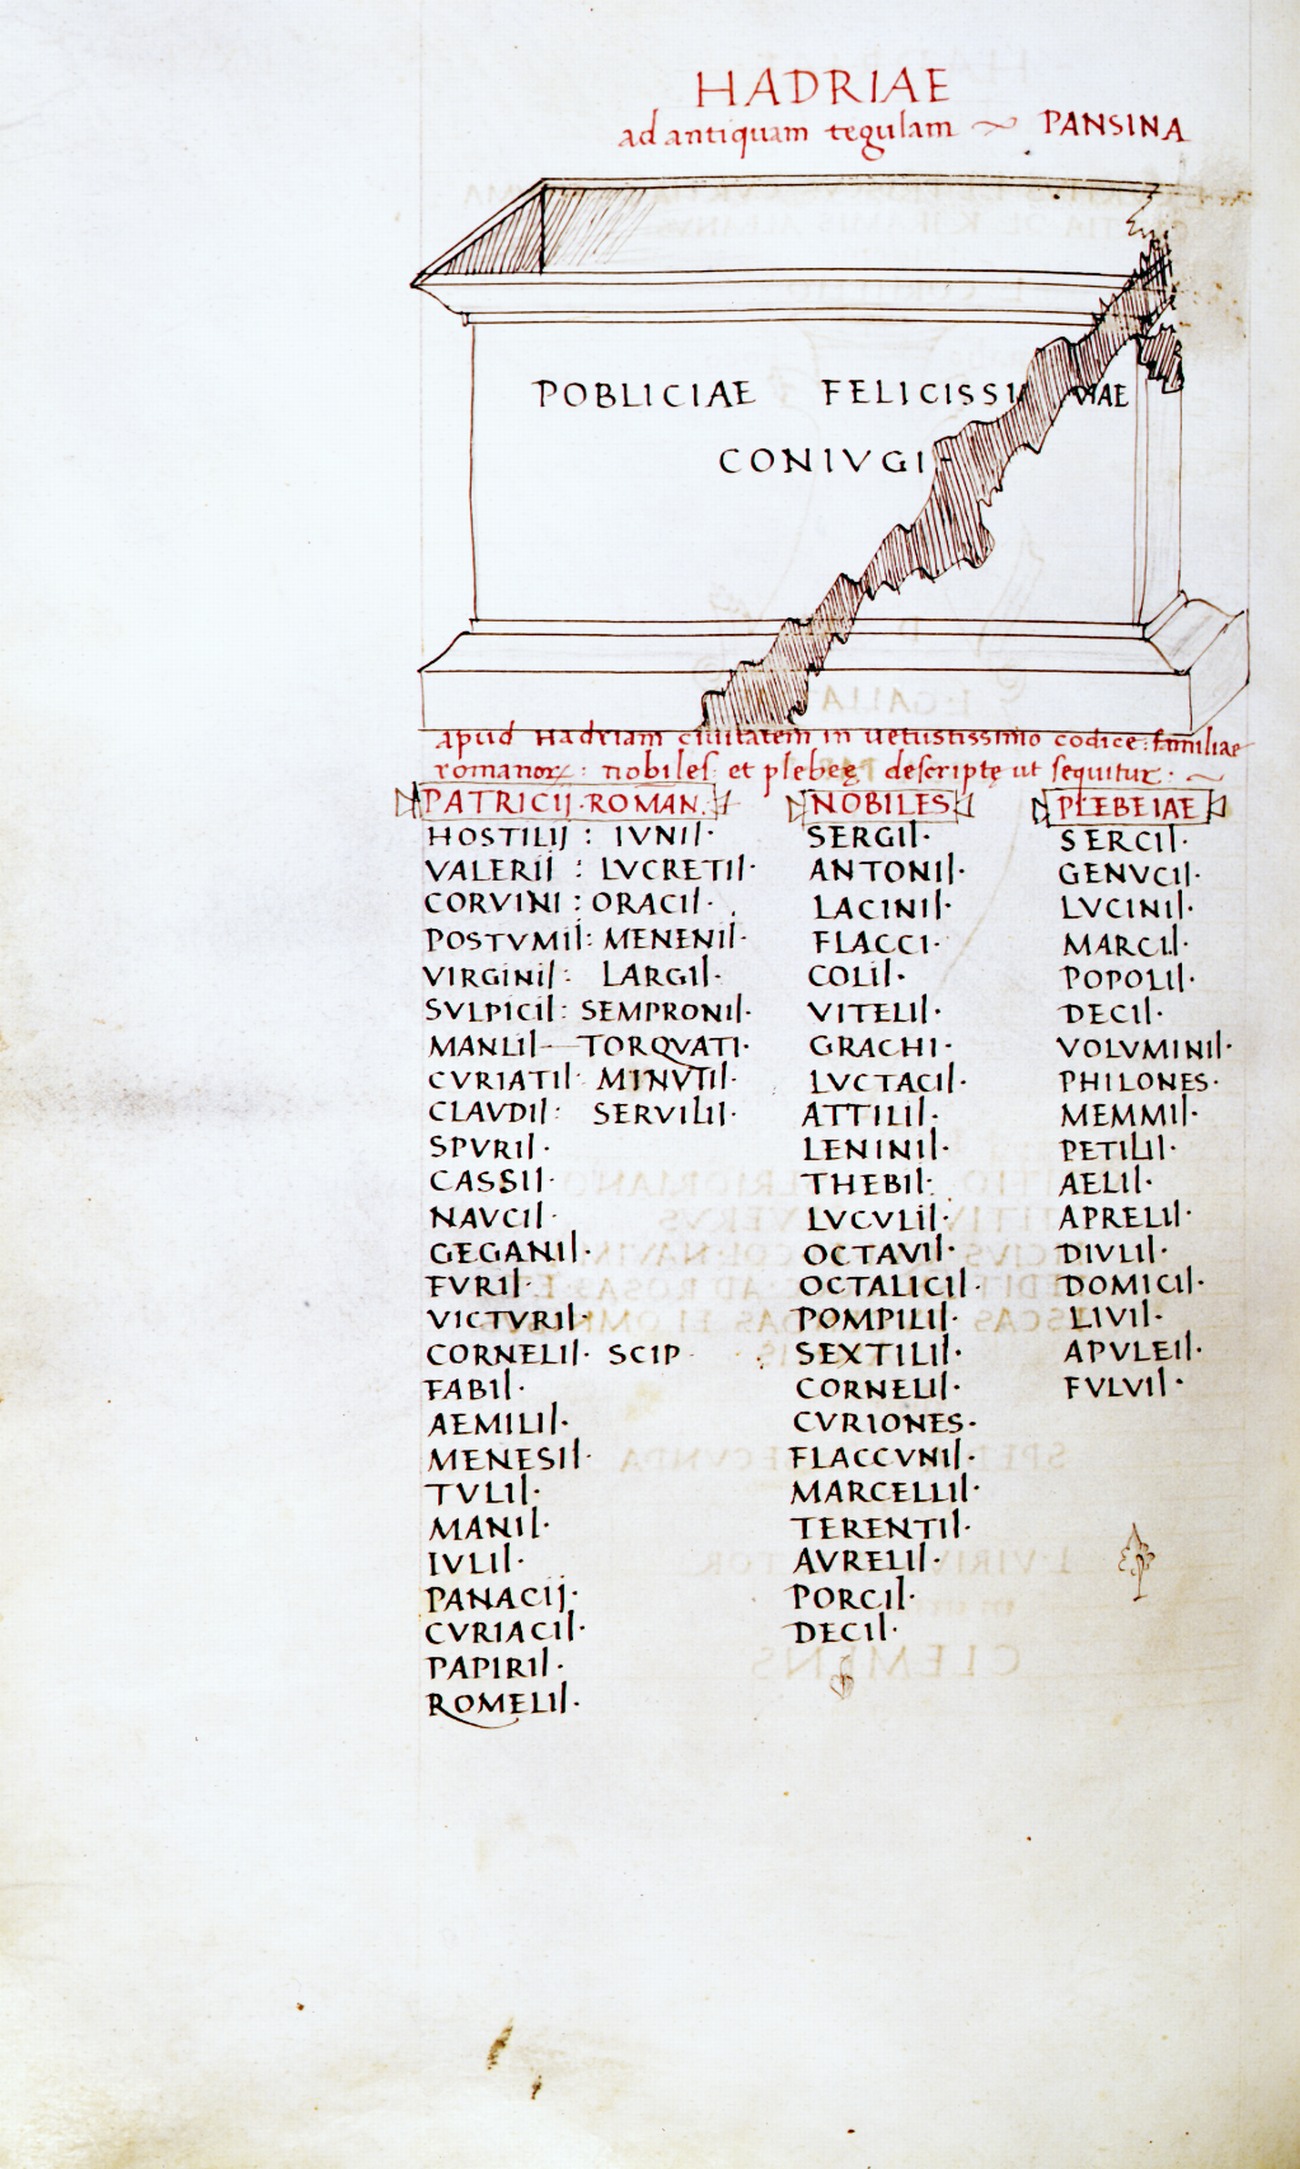 HADRIAE
ad antiquam tegulam ~ PANSINA
POBLICIAE FELICISSI MAE
CONIVGI
apud Hadriam ciuitatem in uetustissimo codice: familiae
romanorꝝ: nobiles et plebeę descriptę ut sequitur. ~
PATRICIJ·ROMAN.
HOSTILIJ : IVNII·
VALERII : LVCRETII·
CORVINI : ORACII·
POSTVMII: MENENII·
VIRGINII: LARGII·
SVLPICII: SEMPRONII·
MANLII—TORQVATI·
CVRIATII· MINVTII·
CLAVDII: SERVILII·
SPVRII·
CASSII·
NAVCII·
GEGANII·
FVRII·
VICTVRII·
CORNELII· SCIP·
FABII·
AEMILII·
MENESII·
TVLII·
MANII·
IVLII·
PANACIJ·
CVRIACII·
PAPIRII·
ROMELII·
NOBILES
SERGII·
ANTONII·
LACINII·
FLACCI·
COLII·
VITELII·
GRACHI·
LVCTACII·
ATTILII·
LENINII·
THEBII:
LVCVLII·
OCTAVII·
OCTALICII·
POMPILII·
SEXTILII·
CORNELII·
CVRIONES·
FLACCVNII·
MARCELLII·
TERENTII·
AVRELII·
PORCII·
DECII·
PLEBEIAE
SERCII·
GENVCII·
LVCINII·
MARCII·
POPOLII·
DECII·
VOLVMINII·
PHILONES·
MEMMII·
PETILII·
AELII·
APRELII·
DIVLII·
DOMICII·
LIVII·
APVLEII·
FVLVII·